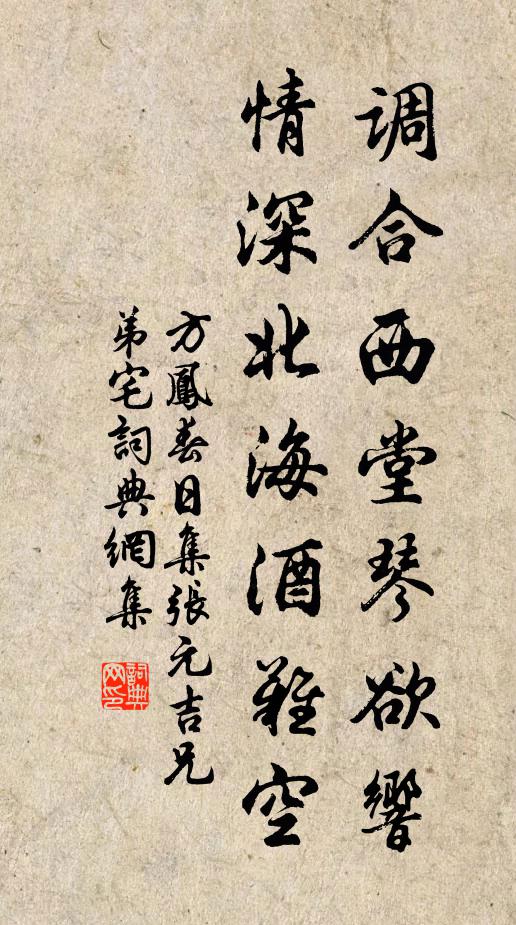 調合西堂琴欲響
情深北海酒難空
方鳳春日集張元吉兄
弟宅詞典網集
詞典網印